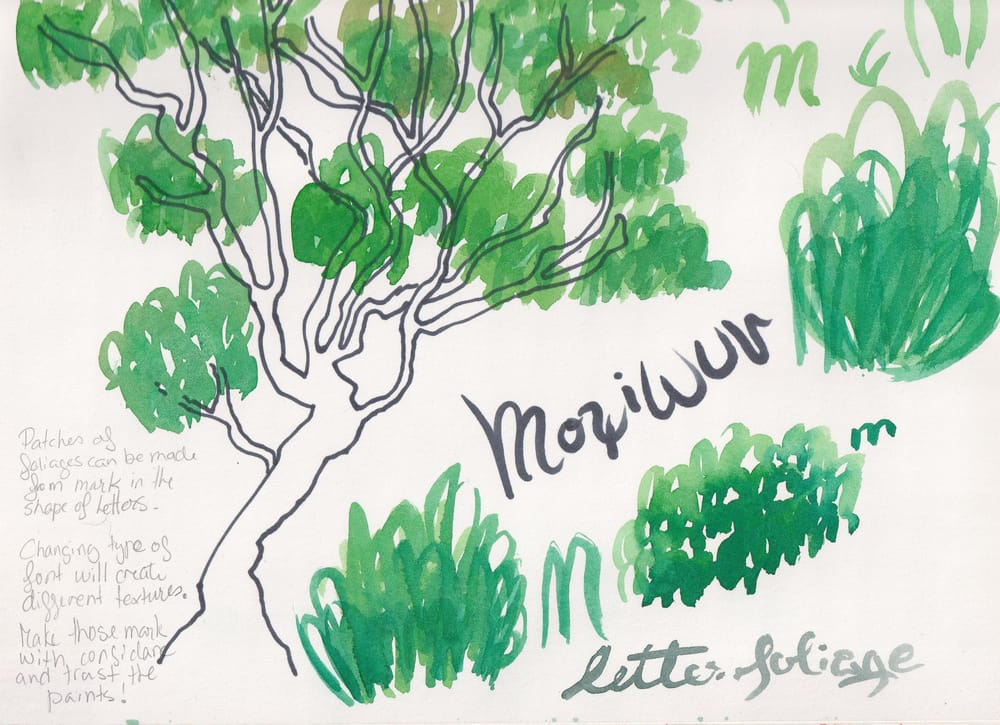 m
MoziWUV
m
m
letter foliage
Patches of
foliages can be made
from mark in the
shape of letters.
Changing type of
font will create
different textures.
Make those mark
with confidane
and trust the
paints!